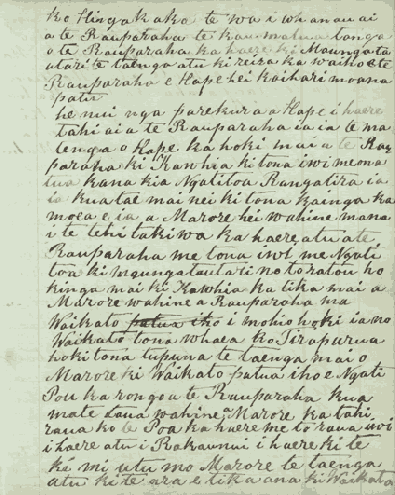 ko Hingakaka te wa i whanau ai
a te Rauparaha te kaumatuatanga
o te Rauparaha ka haere ki Maungata
utari te taenga atu ki reira ka waiho e te
Rauparaha e Hape hei kaihari moana
patu
he nui nga parekura a Hape i haere
tahi ai a te Rauparaha ia ia te ma
tenga o Hape ka hoki mai a te Rau
paraha ki Kawhia ki tona iwi me ona
tua kana kia Ngatitoa Rangatira ia
ia kua tae mai nei ki tona kainga ka
moea e ia a Marore hei wahine mana
i te tehi takiwa ka haere atu a te
Rauparaha me tona iwi me Ngati
toa ki Maungatautari no to ratou ho
kinga mai ki Kawhia ka tika mai a
Marore wahine a Rauparaha ma
Waikato i mohio hoki ia no
Waikato tona whaea ko Parekowhatu
hoki tona tupuna te taenga mai o
Marore ki Waikato patua iho e Ngati
Pou ka rongo te Rauparaha kua
mate tana wahine a Marore ka tahi
raua ko te Poa ka haere me to raua iwi
i haere atu i Rakaunui i haere ki te
ki mi utu mo Marore te taenga
atu ki te ara e tika ana ki Waikato